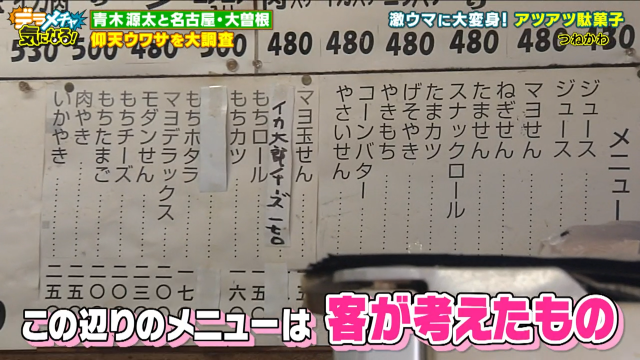 デラメチャ
気になる!
青木源太と名古屋・大曽根
仰天ウワサを大調査
激ウマに大変身!アツアツ駄菓子
つねかわ
530
500
480
480
480
480
480
メニュー
ジュース
ジュース
マヨせん
ねぎせん
たません
スナックロール
たまカツ
げそやき
やきもち
コーンバター
やさいせん
マヨ玉せん
イカ太郎チーズ 一七〇
もちロール
もちカツ
もちホタラ
マヨデラックス
モダンせん
もちチーズ
もちたまご
肉やき
いかやき
この辺りのメニューは 客が考えたもの